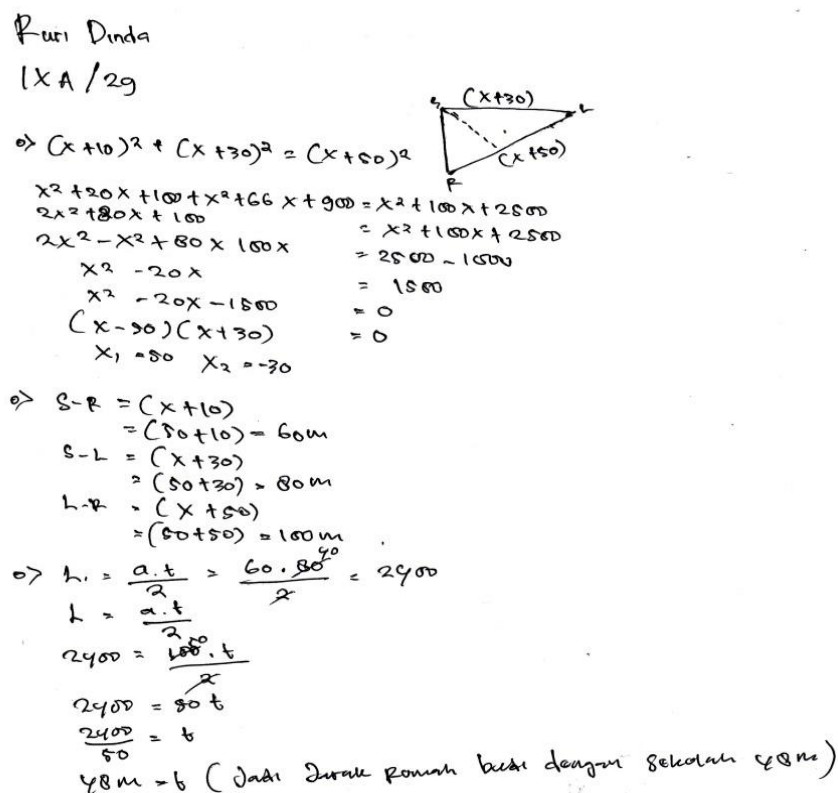 Ruri Dinda
IXA/29
(x+30)
S L
(x+50)
R
=> (x+10)² + (x+30)² = (x+50)²
x² +20x +100+x²+66x+900 = x²+100x+2500
2x²+80x+100 = x²+100x+2500
2x²-x²+80x100x = 2500-1000
x² -20x = 1500
x² -20x-1500 = 0
(x-50)(x+30) = 0
x₁ =50 x₂ =-30
=> S-R = (x+10)
= (50+10) = 60m
S-L = (x+30)
= (50+30) = 80m
L-R = (x+50)
= (50+50) = 100m
=> L. = a.t/2 = 60.80/2 40 = 2400
L = a.t/2
2400 = 100.t/2 50
2400 = 50t
2400/50 = t
48m = t (Jadi Jarak Rumah dengan Sekolah 48m)